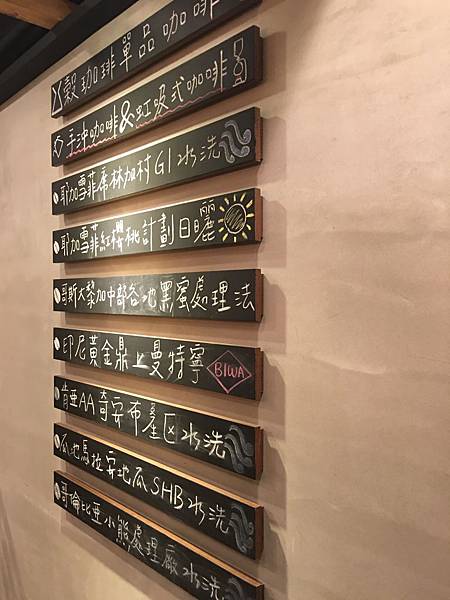 穀珈琲單品咖啡
手沖咖啡&虹吸式咖啡
耶加雪菲席林加村G1水洗
耶加雪菲紅櫻桃計劃日曬
哥斯大黎加中部各地黑蜜處理法
印尼黃金鼎上曼特寧 BIWA
肯亞AA奇安布產区水洗
瓜地馬拉安地瓜SHB水洗
哥倫比亞小熊處理廠水洗